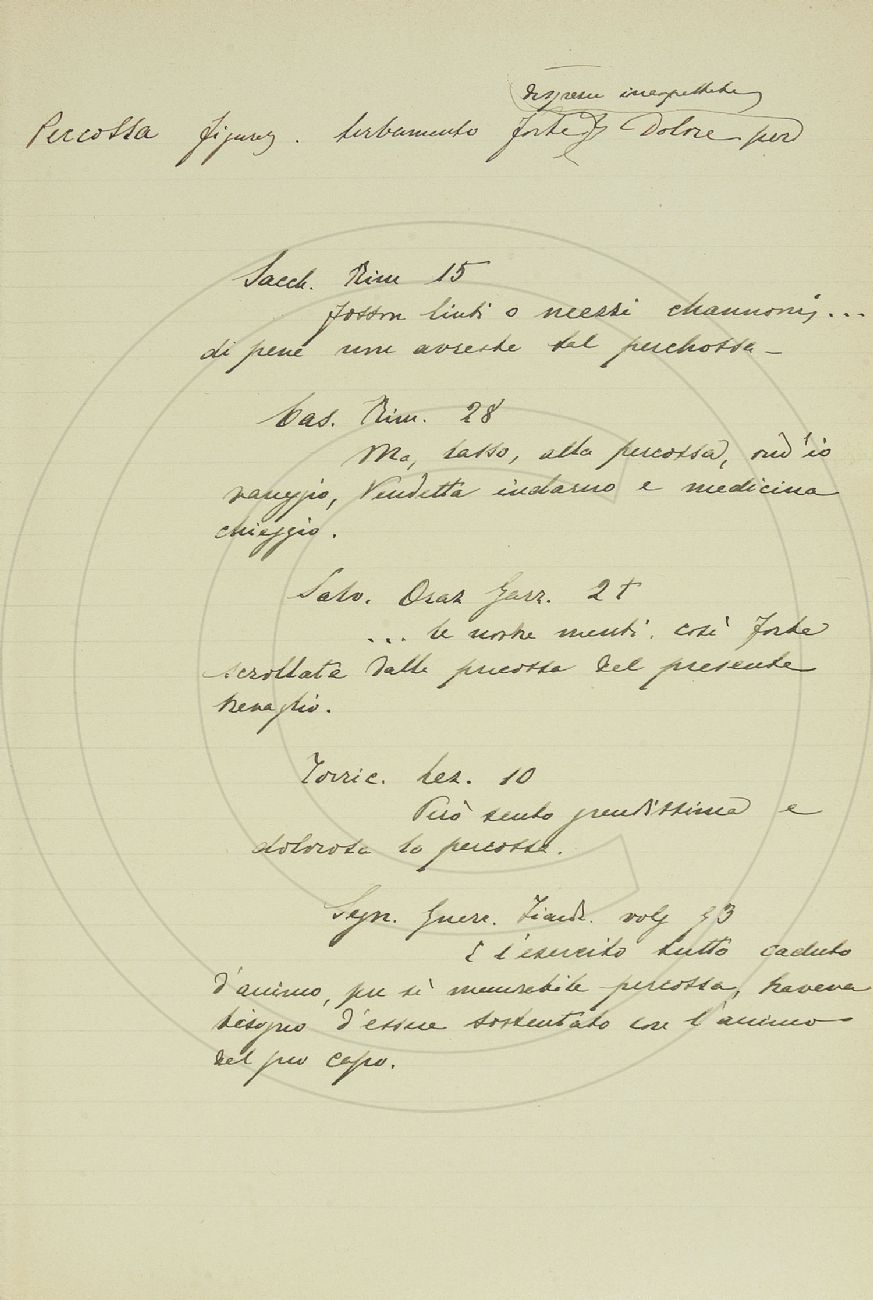 disgrazie inaspettate
Percossa figurat. turbamento forte Dolore per
Sacch. Rim 15
fosson uinti o necessi channoni, ...
di pene non avreste tal perchossa
Cas. Rim. 28
Ma, lasso, alla percossa, ond'io
vaneggio, Vendetta indarno e medicina
chieggio.
Salv. Oraz Garz. 27
... le nostre menti così forte
scrollate dalle percossa del presente
travaglio.
Torric. Lez. 10
Però sento grandissima e
dolorosa la percossa.
Segn. Guerr. Fiand. volg 93
E l'esercito tutto caduto
d'animo, per sì miserabile percossa, haveva
bisogno d'essere sostentato con l'animo
del suo capo.